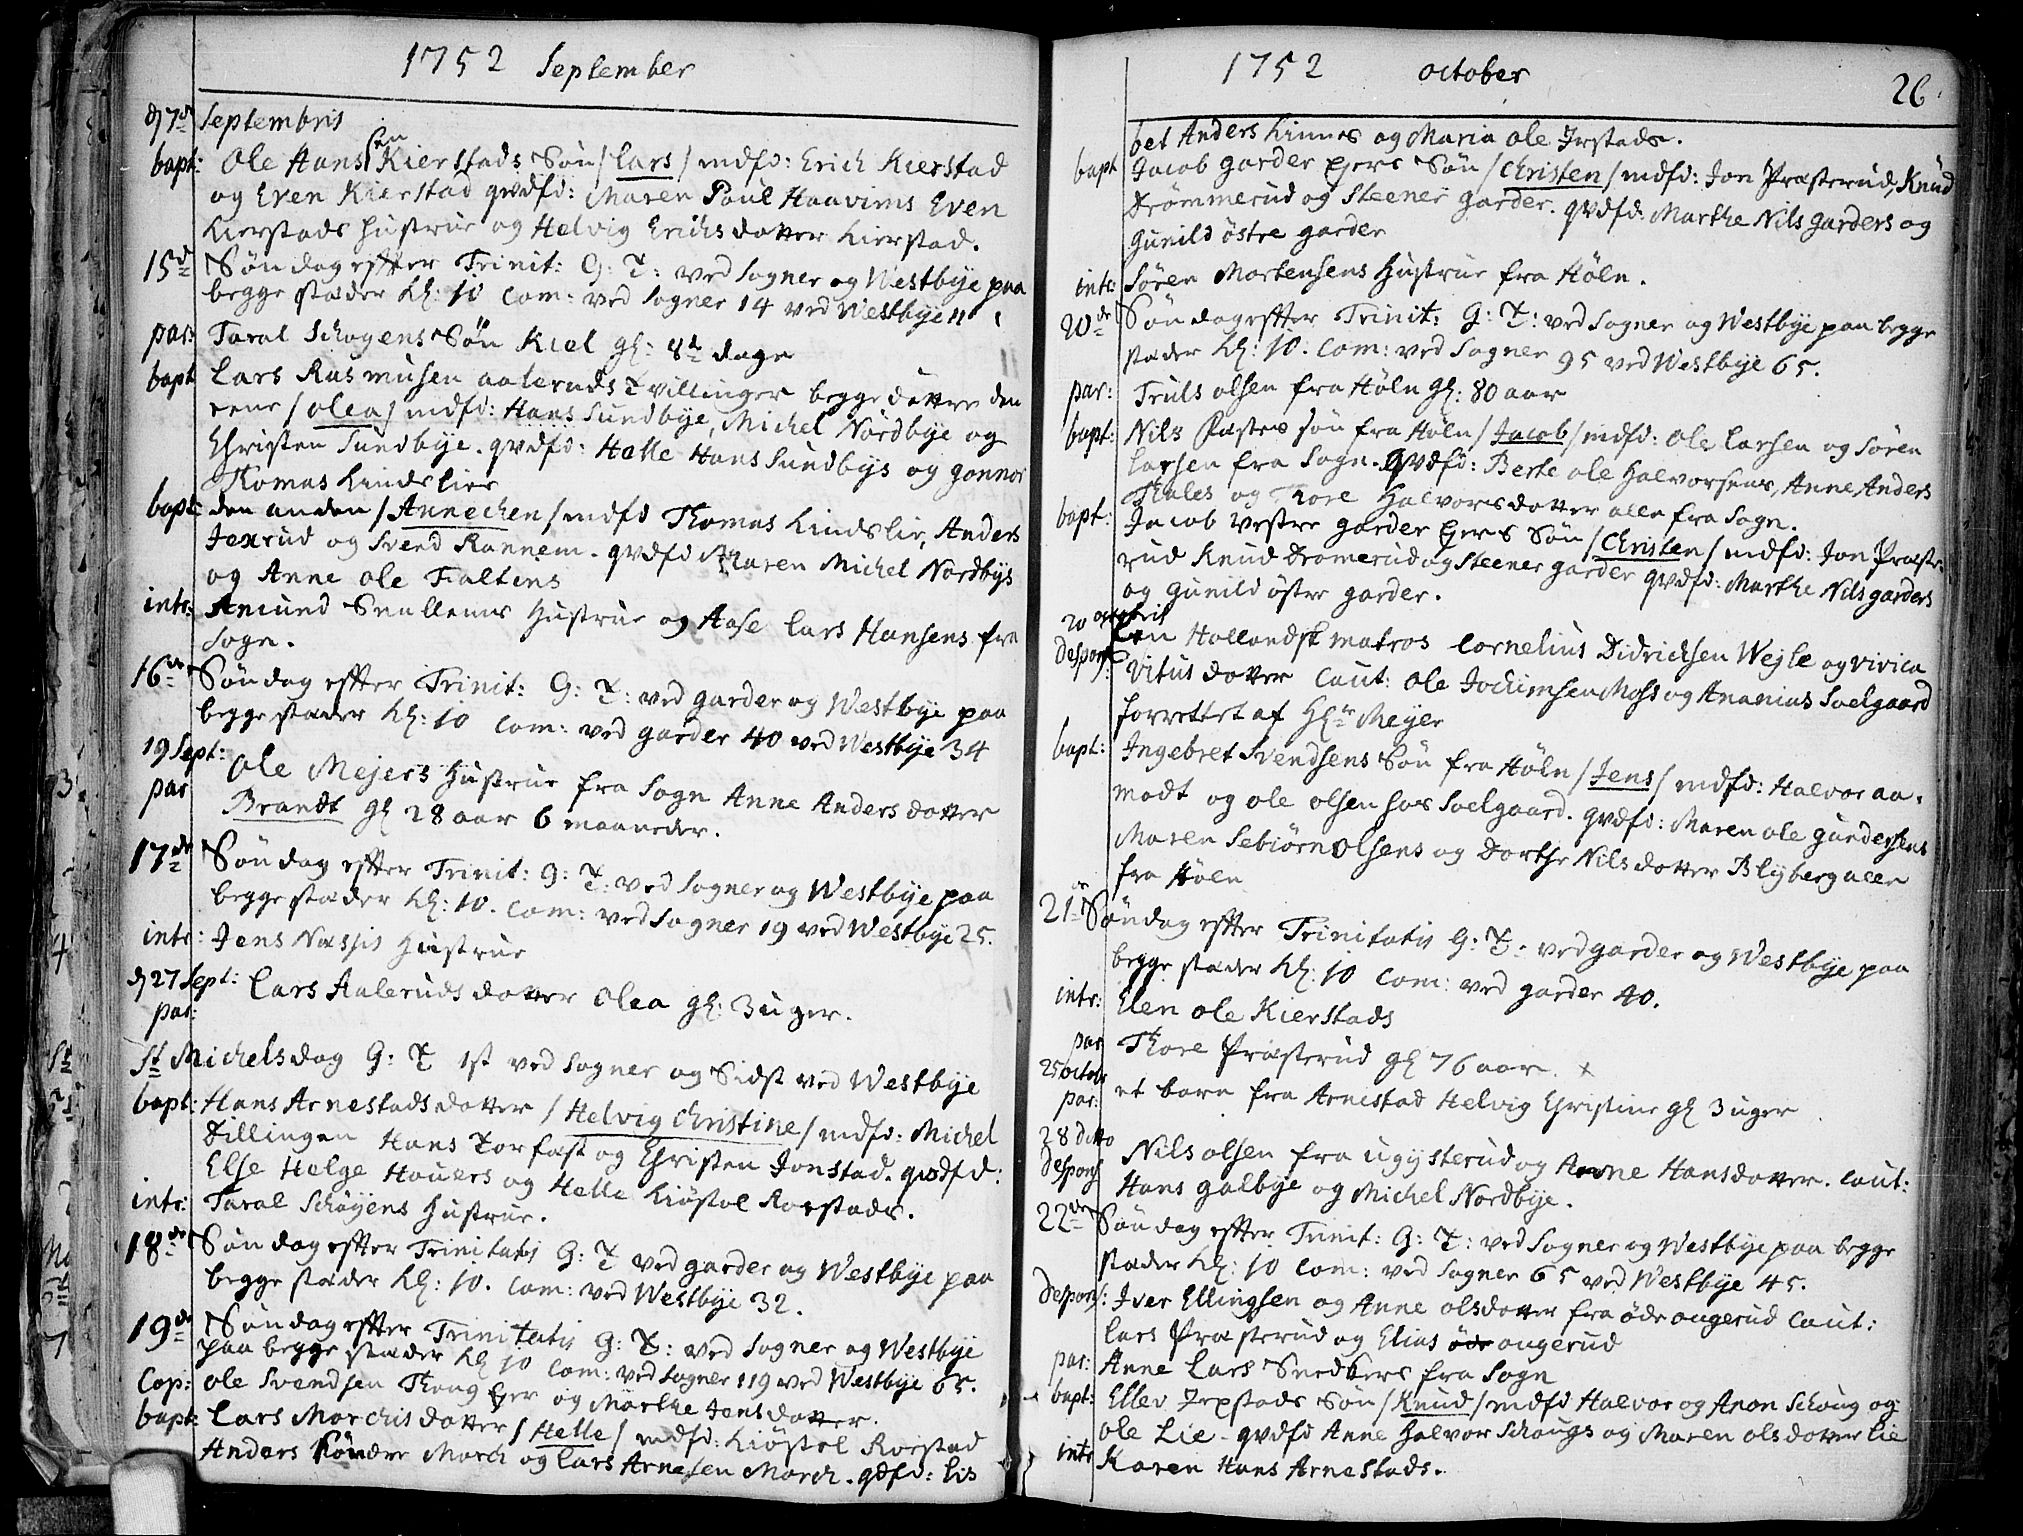 1752 September
d 7de Septembris
bapt: Ole Hansen Kierstads Søn / Lars / mdfd: Erich Kierstad
og Even Kierstad qvdfd: Maren Poul Haavims Even
Kierstads Hustrue og Helvig Erichsdatter Kierstad.
15de Søndag effter Trinit: G: T: ved Sogner og Westbÿe paa
begge stæder Kl: 10 Com: ved Sogner 14 ved Westbÿe 11
par: Taral Schoÿens Søn Kiel gl: 8te dage
bapt Lars Rasmusen aaleruds Tvillinger begge døttre den
eene / olea / mdfd: Hans Sundbÿe, Michel Nordbÿe og
Christen Sundbÿe. qvdfd: Helle Hans Sundbÿs og gonnor
Thomas Lindslies
bapt: den anden / Annechen / mdfd Thomas Lindslie, Anders
Jexrud og Svend Rannem. qvdfd Maren Michel Nordbÿs
og Anne ole Faltins
intr: Amund Snellems Hustrue og Aase Lars Hansens fra
Sogn.
16de Søndag effter Trinit: G: T: ved garder og Westbÿe paa
begge stæder Kl: 10 Com: ved garder 40 ved Westbÿe 34
19 Sept: Ole Mejers Hustrue fra Sogn Anne Anders datter
par Brandt gl 28 aar 6 maaneder.
17de Søndag effter Trinit: G: T: ved Sogner og Westbÿe paa
begge stæder Kl: 10. Com: ved Sogner 19 ved Westbÿe 25.
intr: Jens Næssis Hustrue
d 27 Sept: Lars Aaleruds datter Olea gl: 3 uger.
par:
St Michelsdag G: T 1st ved Sogner og Sidst ved Westbÿe
bapt: Hans Arnestads datter / Helvig Christine / mdfd: Michel
Dillingen Hans Torfast og Christen Jonstad. qvdfd:
Else Helge Houers og Helle Kiøstol Rorstads.
intr: Taral Schøÿens Hustrue.
18de Søndag effter Trinitatis G: T ved garder og Westbÿe paa
begge stæder Kl: 10. Com: ved Westbÿe 32.
19de Søndag effter Trinitatis G: T: ved Sogner og Westbÿe
paa begge stæder Kl 10 Com: ved Sogner 119 ved Westbÿe 65.
Cop: ole Svendsen Thoug Ejer og Marthe Jensdatter.
bapt: Lars Morchis datter / Helle / mdfd: Kiøstol Rorstad
Anders Søndre Morch og Lars Arnesen Morch. qdfd: Lis
1752 october 26
bet Anders Linnes og Maria ole Irstads.
bapt Jacob garder Ejers Søn / Christen / mdfd: Jon Præsterud, Knud
Drømmerud og Steener garder. qvdfd: Marthe Nils garders og
Gunild østre garder
intr: Søren Mortensens Hustrue fra Høln.
20de Søndag effter Trinit: G: T: ved Sogner og Westbÿe paa begge
stæder Kl: 10. Com: ved Sogner 95 ved Westbÿe 65.
par: Truls olsen fra Høln gl: 80 aar
bapt: Nils Pæstes søn fra Høln / Jacob / mdfd: ole Larsen og Søren
Larsen fra Sogn. Qvdfd: Berte ole Halvorsens, Anne Anders
Thales og Thore Halvorsdatter alle fra Sogn.
bapt: Jacob vestre garder Ejers Søn / Christen / mdfd: Jon Præste-
rud Knud Dromerud og Steener garder qvdfd: Marthe Nils garders
og Gunild øster garder.
20 octobris
desponsd: Een Hollandsk matros Cornelius Didricksen Wejle og vivica
Vitus datter Caut: ole Jochimsen Moss og Ananias Soelgaard
forrettet af Hr Meÿer
bapt: Ingebret Svendsens Søn fra Høln / Jens / mdfd: Halvor aa-
modt og ole olsen hos Soelgaard. qvdfd: Maren ole gundersens
Maren Sebiørn olsens og Dorthe Nils datter Blÿberg alle
fra Høln
21de Søndag effter Trinitatis G: T: ved garder og Westbÿe paa
begge stæder Kl: 10 Com: ved garder 40.
intr: Elen ole Kierstads
par Thore Præsterud gl 76 aar. x
25 octobr
par: et barn fra Arnestad Helvig Christine gl 3 uger
28 ditto
desponsd Nils olsen fra ugÿsterud og Anne Hansdatter. Caut:
Hans galbÿe og Michel Nordbÿe.
22de Søndag effter Trinit: G: T: ved Sogner og Westbÿe paa begge
stæder Kl: 10 Com: ved Sogner 65 ved Westbÿe 45.
desponsd: Iver Ellingsen og Anne olsdatter fra øde ougerud Caut:
Lars Præsterud og Elias øde ougerud
par: Anne Lars Snedkers fra Sogn
bapt: Ellev Irestads Søn / Knud / mdfd Halvor og Anon Schoug og
ole Lie. qvdfd Anne Halvor Schougs og Maren olsdatter Lie
intr Karen Hans Arnestads.